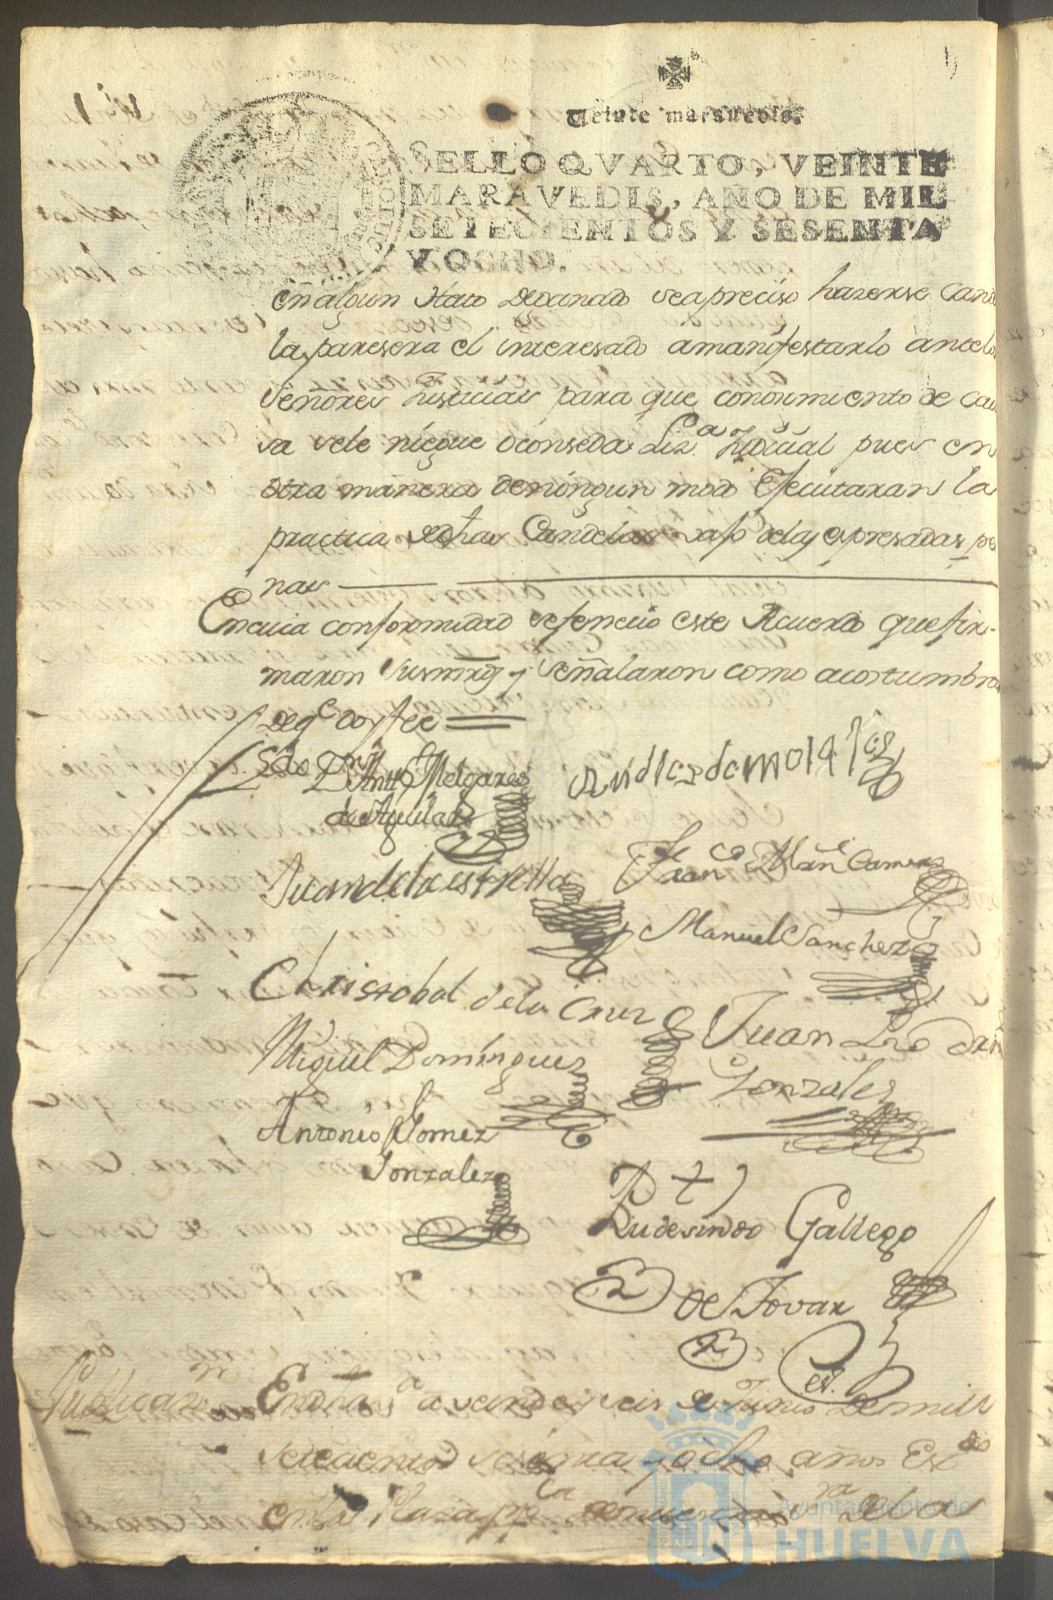 Veinte maravedis.
SELLO QVARTO, VEINTE
MARAVEDIS, AÑO DE MIL
SETECIENTOS Y SESENTA
Y OCHO.
en algun Hato de ganado sea preciso hazerse Cande
la, paresera el interesado a manifestarlo antelos
Señores Justicias para que conosimiento de cau
sa sele niegue o conseda Liz.a Judicial pues en
otra manera de ningun modo Ejecutaran la
practica de dhas Candelas vajo de las espresadas pe
nas
En cuia conformidad se fenecio este Acuerdo que fir-
maron sus mrds y señalaron como acostumbran
de q.e doy fee
Ldo Dn Antt.o Melgarejo
de Aguilar
Juan de la estrella
Fran.co Man.l Camero
Manuel Sanchez
Christobal de la Cruz
Juan Lro
Miguel Dominguez
Gonzales
Antonio Gomez
Gonzalez
Rudesindo Gallego
de Tovar
Publicaz.n
En dha v.a a veinte y seis de Junio de mill
setecientos sesenta y ocho años Est.do
en la Plaza de esta
Ayuntamiento de
HUELVA